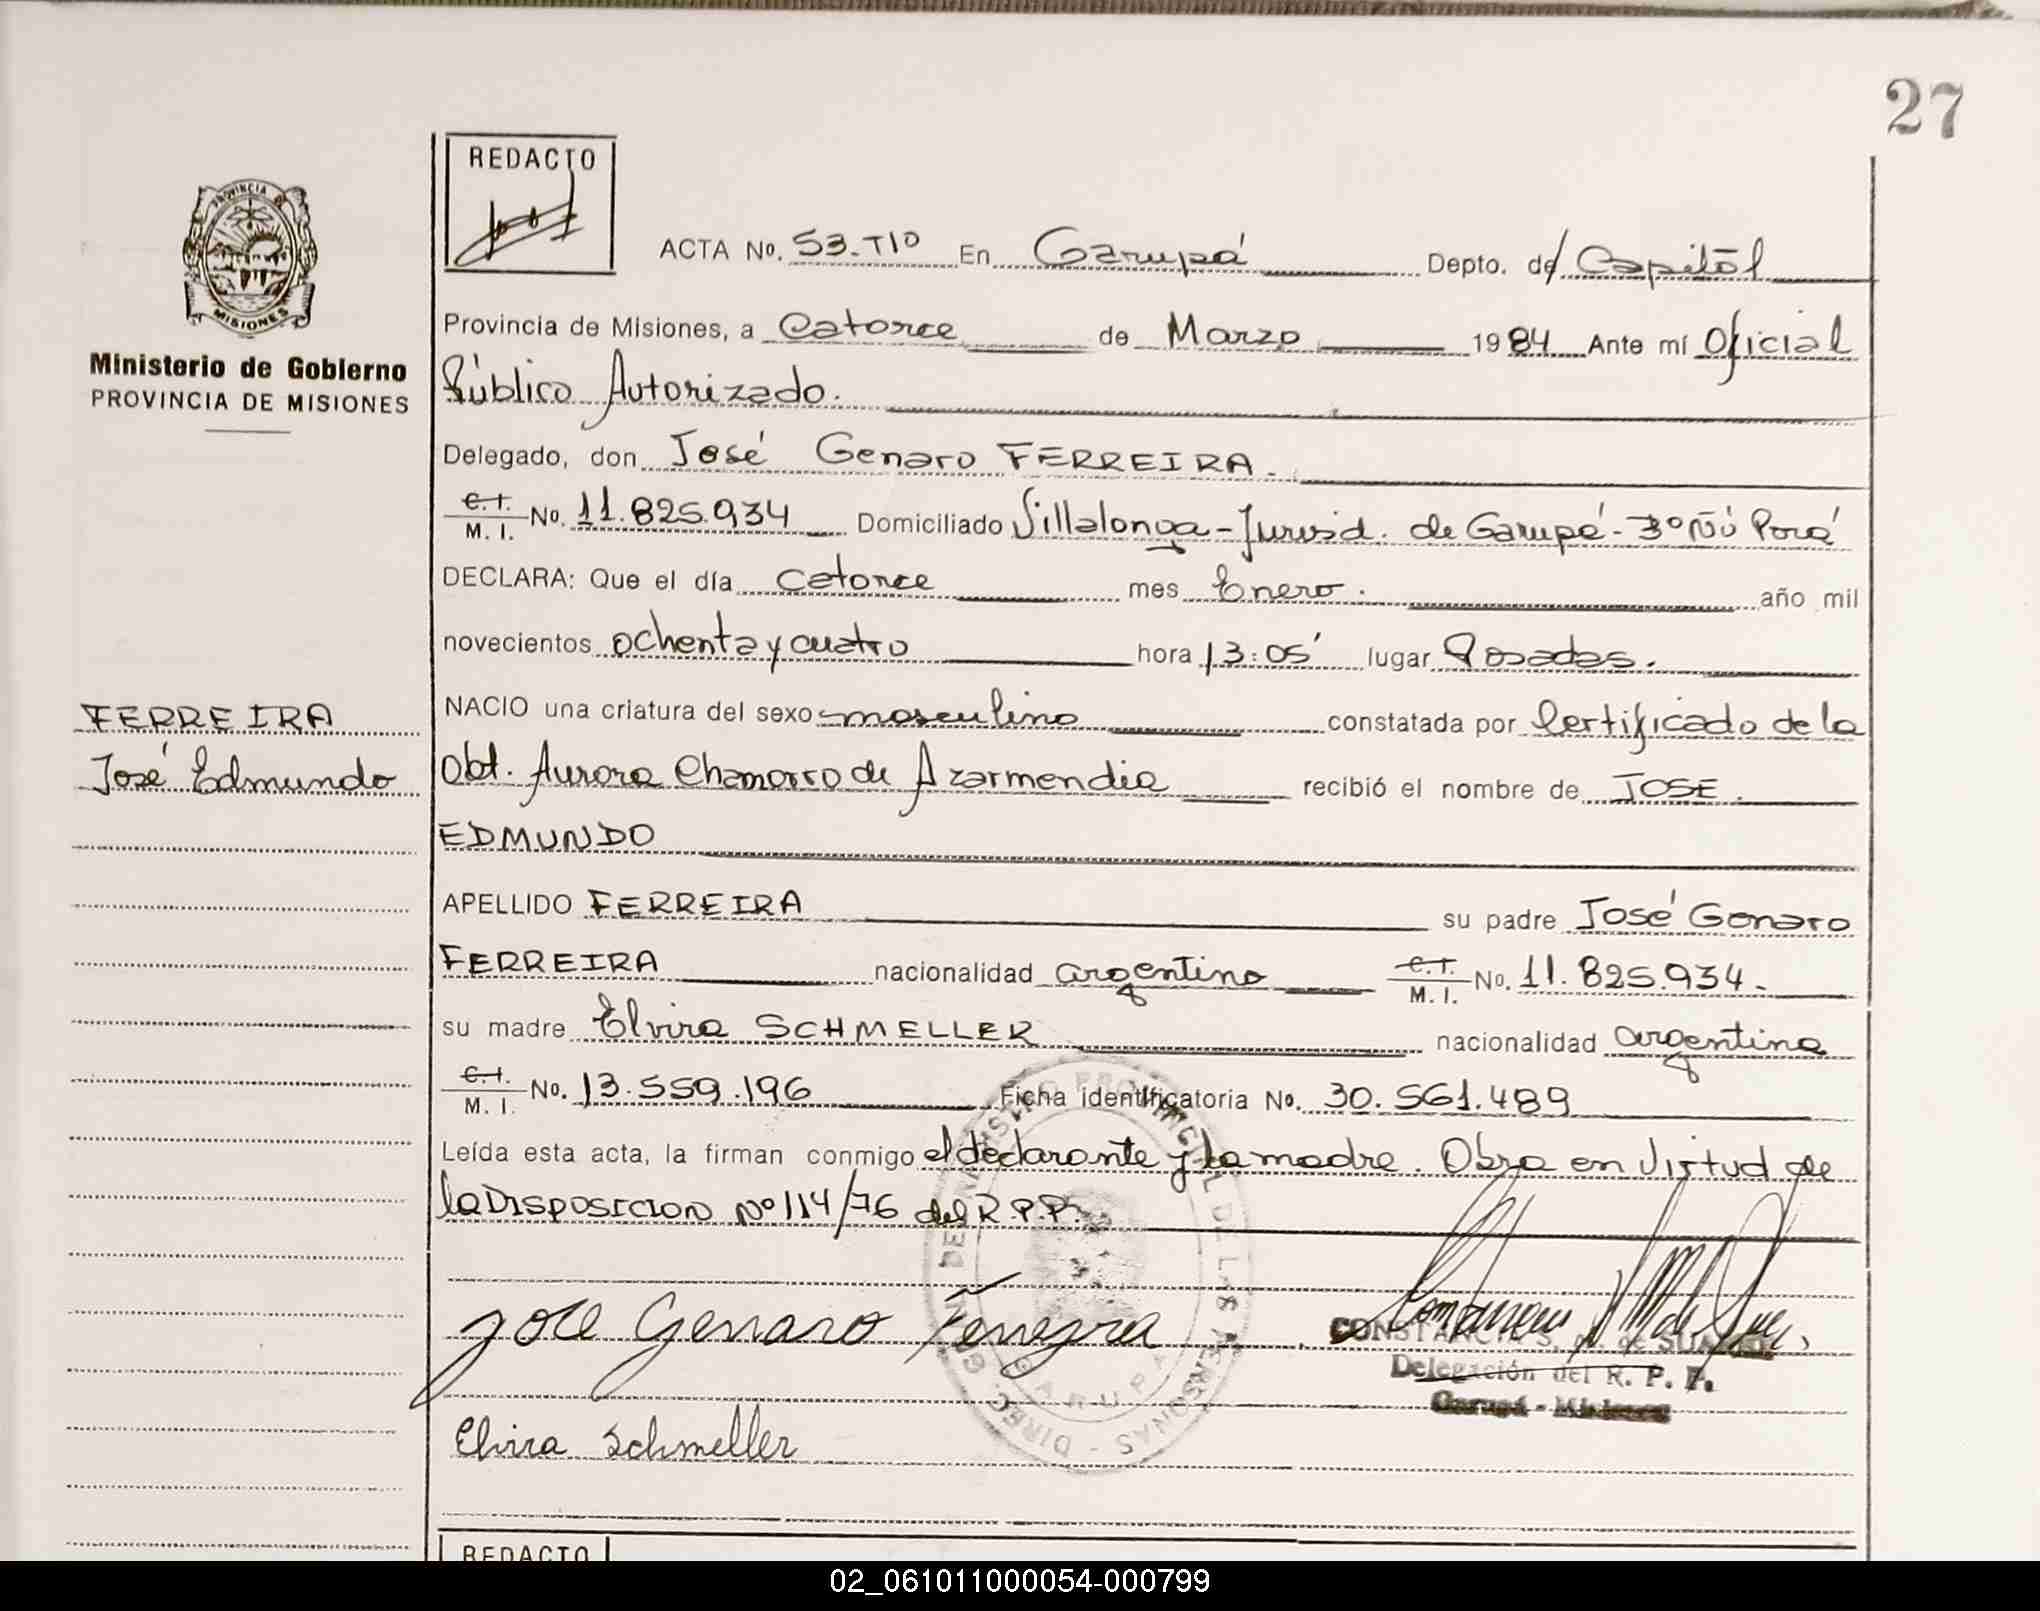 27
REDACTO
ACTA No. 53. Tº En Garupá Depto. de Capital
Provincia de Misiones, a Catorce de Marzo 1984 Ante mí Oficial
Público Autorizado.
PROVINCIA DE
MISIONES
Ministerio de Gobierno
PROVINCIA DE MISIONES
Delegado, don José Genaro FERREIRA.
C.I.
M. I. No. 11.825.934 Domiciliado Villalonga - Jurisd. de Garupá - Porá
DECLARA: Que el día catorce mes Enero. año mil
novecientos ochenta y cuatro hora 13:05' lugar Posadas.
FERREIRA
José Edmundo
NACIO una criatura del sexo masculino constatada por Certificado de la
Obt. Aurora Chamorro de Azarmendia recibió el nombre de JOSE
EDMUNDO
APELLIDO FERREIRA su padre José Genaro
FERREIRA nacionalidad argentino C.I. M. I. No. 11.825.934.
su madre Elvira SCHMELLER nacionalidad argentina
C.I.
M. I. No. 13.559.196 Ficha identificatoria No. 30.561.489
Leída esta acta, la firman conmigo el declarante y la madre. Obra en virtud de
la DISPOSICION Nº 114/76 del R.P.P.
Jose Genaro Ferreyra
Delegación del R. P. P.
Garupá - Misiones
Elvira Schmeller
REDACTO
02_061011000054-000799